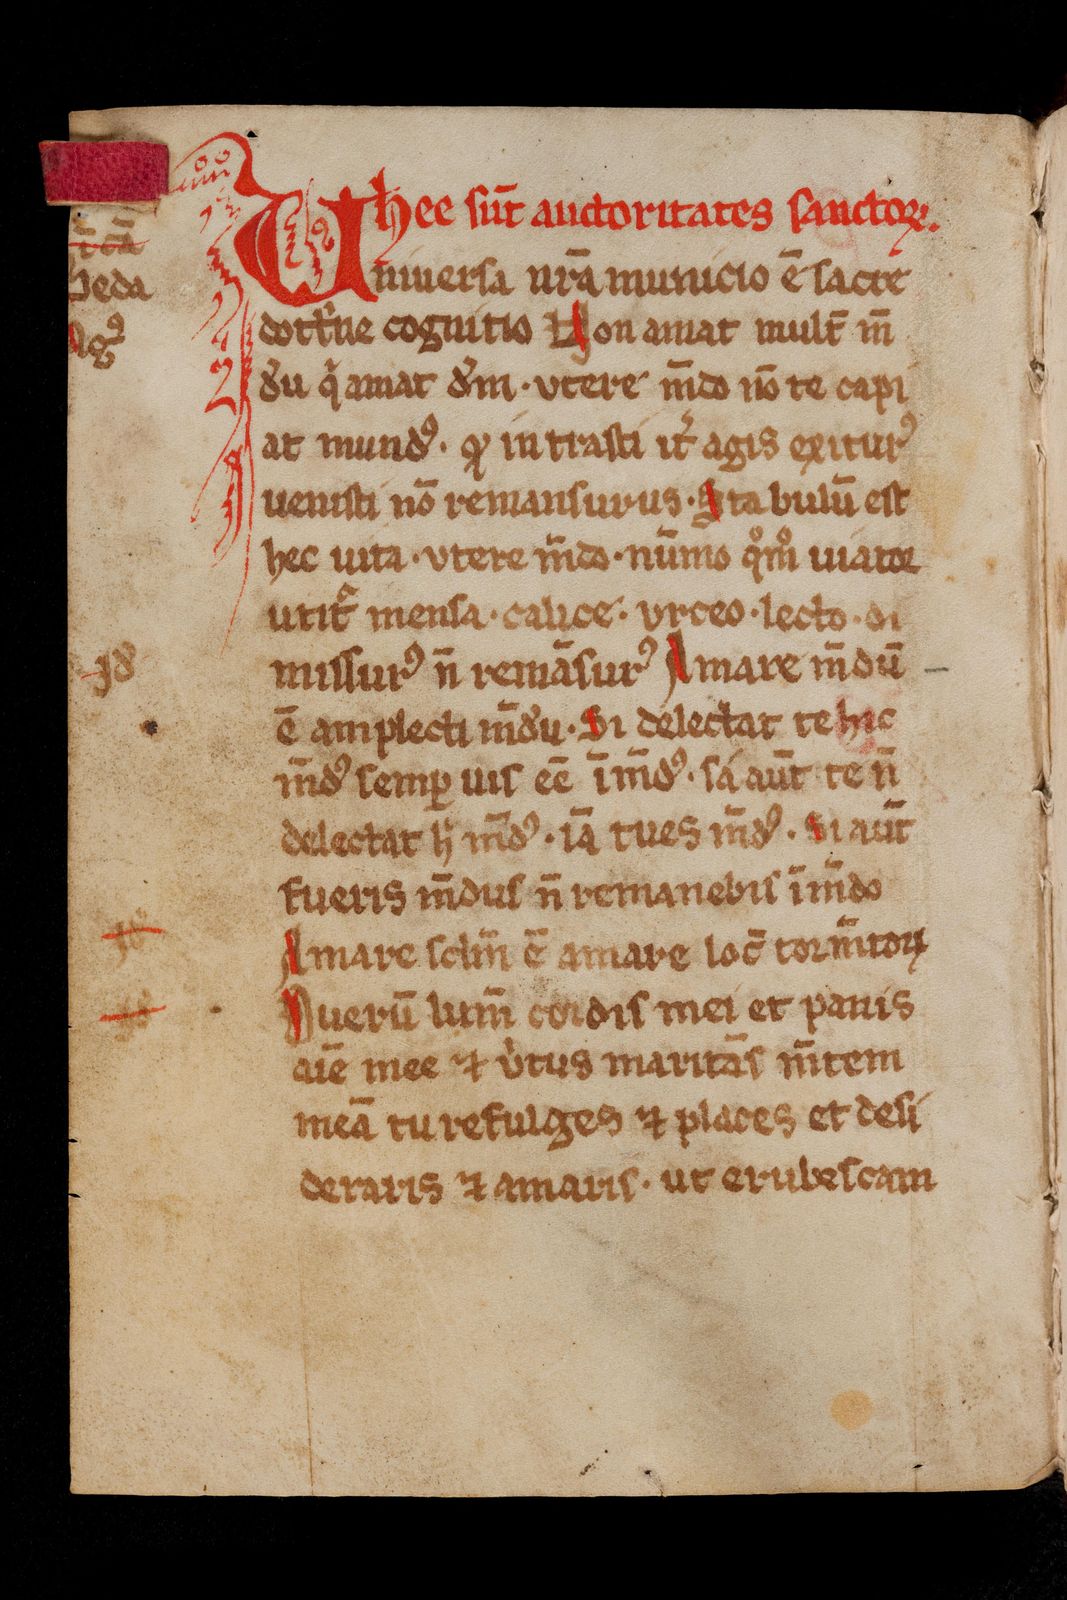 hee sūt auctoritates sanctoꝝ.
Vniuersa nr̄a municio ē sacre
dottͥne cognitio Non amat mult̄ m̄
dū qͥ amat dm̄ · vtere m̄do nō te capi
at mundꝰ · qͥ intrasti it̄ agis exiturꝰ
uenisti nō remansurus · Stabulū est
hec uita · vtere m̄do · num̄o qͦmͦ uiator
utit̄ mensa · calice · vrceo · lecto · di
missurꝰ n̄ remāsurꝰ Amare m̄dū
ē amplecti m̄du · Si delectat te hic
m̄dꝰ semꝑ uis eē ī m̄dꝰ · sa aūt te n̄
delectat h̄ m̄dꝰ · iā tu es m̄dꝰ · Si aūt
fueris m̄dus n̄ remanebis ī m̄do
Amare sclm̄ ē amare loc̄ torm̄toꝝ
O uerū lum̄ cordis mei et panis
aīe mee ⁊ v̓tus maritās m̄tem
meā tu refulges ⁊ places et desi
deraris ⁊ amaris · ut erubescam
beda
Agꝰ